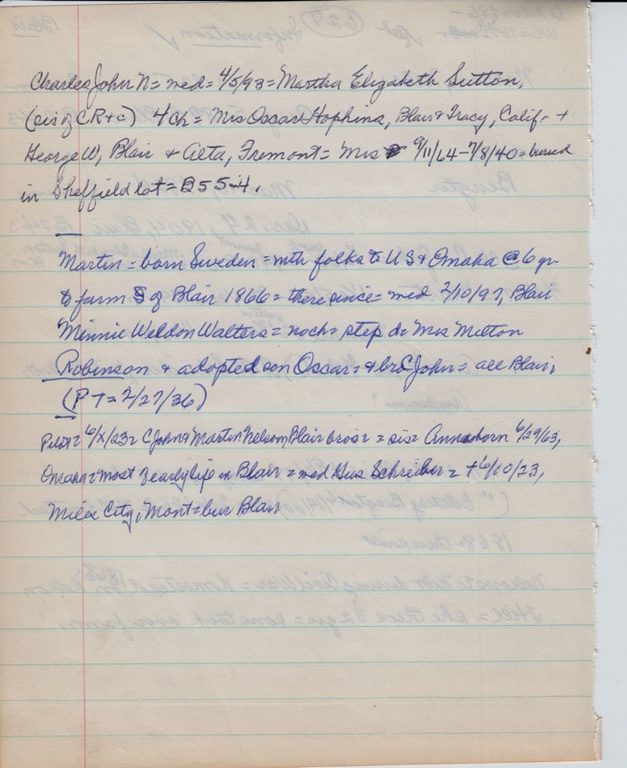 Charles John N = med = 4/5/93 = Martha Elizabeth Sutton,
(sis of CR + c) 4 Ch = Mrs Oscar Hopkins, Blair & Tracy, Calif. +
George W, Blair & Alta, Fremont = Mrs 9/11/64 - 7/8/40 = buried
in Sheffield lot = 255-4.
Martin = born Sweden = mth folks to US & Omaha @ 6 yr
to farm S of Blair 1866 = there since = med 2/10/97, Blair
Minnie Weldon Walters = noch = step d = Mrs Milton
Robinson & adopted son Oscar = & bro C John = all Blair,
(P T = 2/27/36)
6/X/23 = C John & Martin Nelson, Blair bros = sis = Anna born 6/29/63,
Omaha = most early life in Blair = med Gus Schreiber = + 6/10/23,
Miles City, Mont = bur Blair